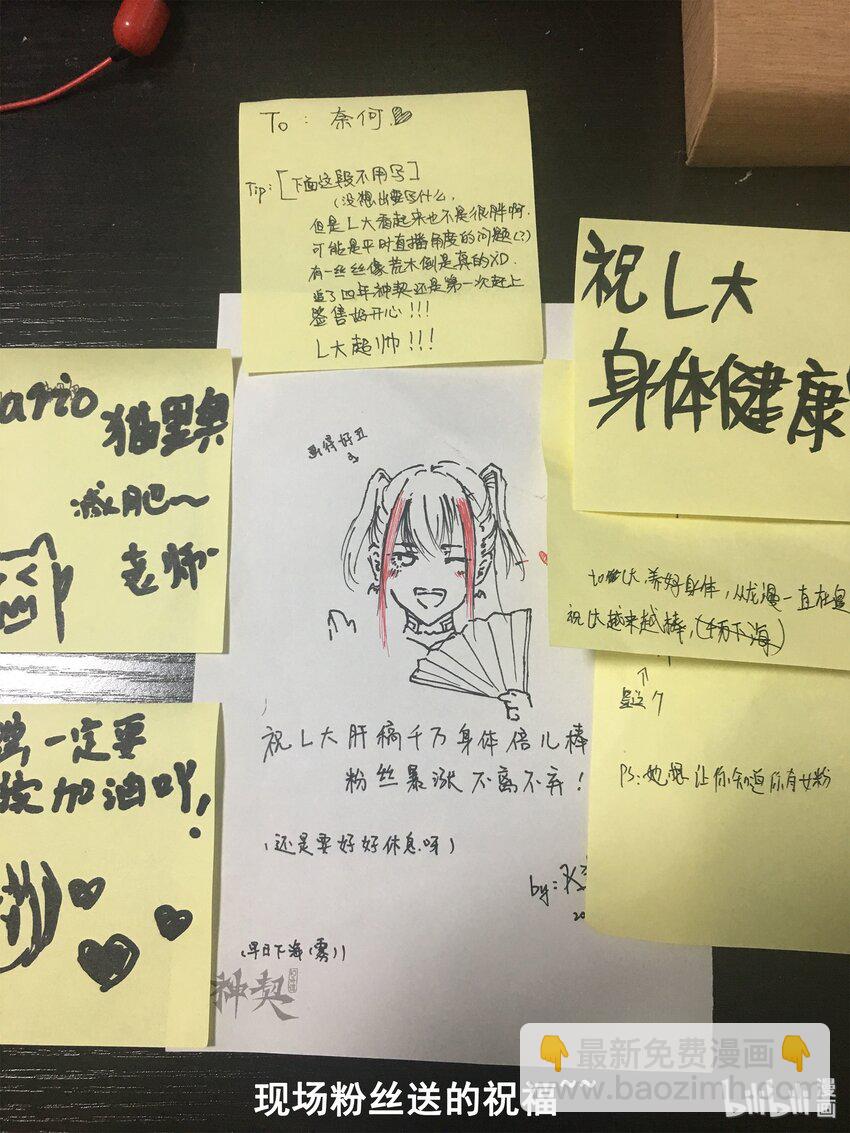 To：奈何
Tip：[下面这段不用写]
(没想出要写什么，
但是L大看起来也不是很胖啊，
可能是平时直播角度的问题(？)
有一丝丝像荒木倒是真的XD.
追了四年神契还是第一次赶上
签售好开心!!!
L大超帅!!!
祝L大
身体健康
ario
猫里奥
减肥～
老师
画得好丑
养好身体，从龙漫一直在
祝L大越来越棒，(千万下海)
PS：她想让你知道你有女粉
一定要
加油吖!
祝L大肝稿千万身体倍儿棒
粉丝暴涨不离不弃!
(还是要好好休息呀)
by:
20
(早日下海(雾))
神契
最新免费漫画
www.baozimh.com
现场粉丝送的祝福~~
bilibili
漫画